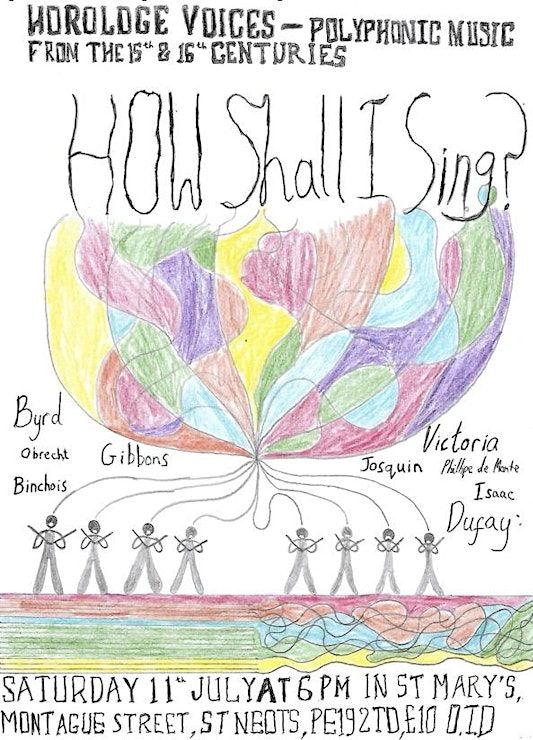 HOROLOGE VOICES – POLYPHONIC MUSIC
FROM THE 15th & 16th CENTURIES
HOW Shall I Sing?
Byrd
Obrecht
Gibbons
Binchois
Victoria
Josquin
Phillipe de Monte
Isaac
Dufay
SATURDAY 11th JULY AT 6 PM IN ST MARY'S,
MONTAGUE STREET, ST NEOTS, PE19 2TD, £10 O.T.D